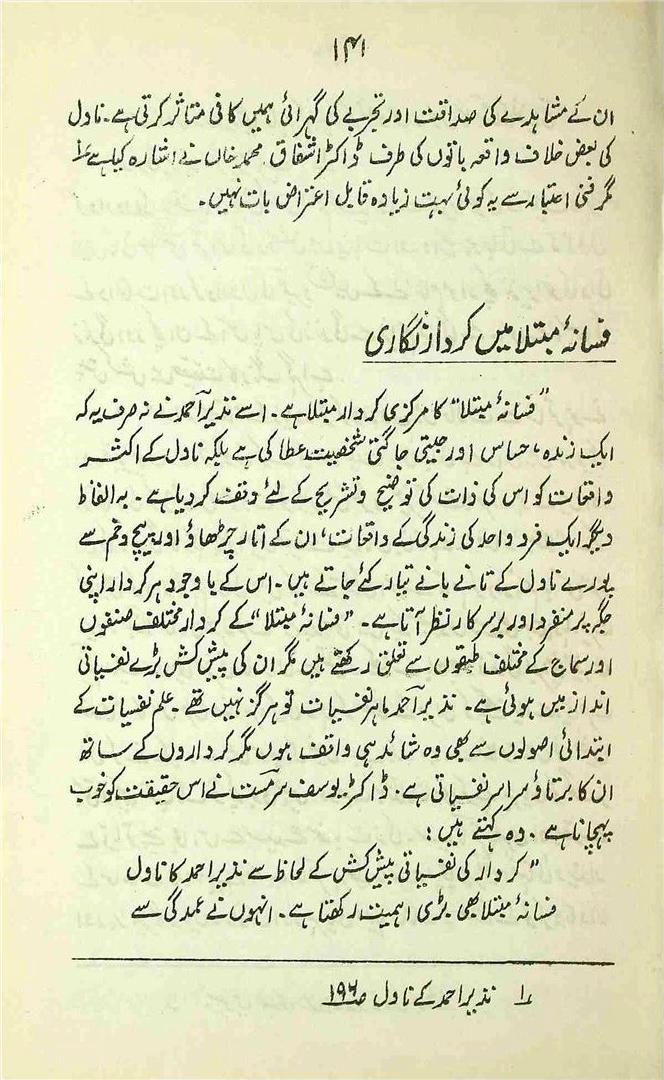 ۱۴۱
ان کے مشاہدے کی صداقت اور تجربے کی گہرائی ہمیں کافی متاثر کرتی ہے۔ ناول
کی بعض خلاف واقعہ باتوں کی طرف ڈاکٹر اشفاق محمد خاں نے اشارہ کیا ہے ۱؎
مگر فنی اعتبار سے یہ کوئی بہت زیادہ قابل اعتراض بات نہیں۔
فسانۂ مبتلا میں کردار نگاری
"فسانۂ مبتلا" کا مرکزی کردار مبتلا ہے۔ اسے نذیر احمد نے نہ صرف یہ کہ
ایک زندہ، حساس اور جیتی جاگتی شخصیت عطا کی ہے بلکہ ناول کے اکثر
واقعات کو اس کی ذات کی توضیح و تشریح کے لئے وقف کردیا ہے۔ بہ الفاظ
دیگر ایک فرد واحد کی زندگی کے واقعات، ان کے اتار چڑھاؤ اور پیچ و خم سے
پورے ناول کے تانے بانے تیار کئے جاتے ہیں۔ اس کے باوجود ہر کردار اپنی
جگہ پر منفرد اور برسر کار نظر آتا ہے۔ "فسانۂ مبتلا" کے کردار مختلف صنفوں
اور سماج کے مختلف طبقوں سے تعلق رکھتے ہیں مگر ان کی پیش کش بڑے نفسیاتی
انداز میں ہوئی ہے۔ نذیر احمد ماہر نفسیات تو ہرگز نہیں تھے۔ علم نفسیات کے
ابتدائی اصولوں سے بھی وہ شائد ہی واقف ہوں مگر کرداروں کے ساتھ
ان کا برتاؤ سراسر نفسیاتی ہے۔ ڈاکٹر یوسف سرمست نے اس حقیقت کو خوب
پہچانا ہے۔ وہ کہتے ہیں:
"کردار کی نفسیاتی پیش کش کے لحاظ سے نذیر احمد کا ناول
فسانۂ مبتلا بھی بڑی اہمیت رکھتا ہے۔ انہوں نے عمدگی سے
۱؎ نذیر احمد کے ناول صـ۱۹۶